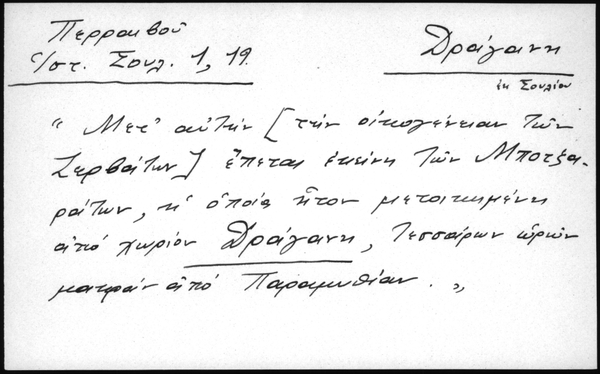 Περραιβού
Ἱστ. Σουλ. 1, 19
Δράγανη
ἐκ Σουλίου
"Μετ' αὐτήν [τήν οἰκογένειαν τῶν
Ζερβάτων] ἕπεται ἐκείνη τῶν Μποτζα-
ράτων, ἡ ὁποία ἦτον μετοικημένη
ἀπό χωρίον Δράγανη, τεσσάρων ὡρῶν
μακράν ἀπό Παραμυθίαν."